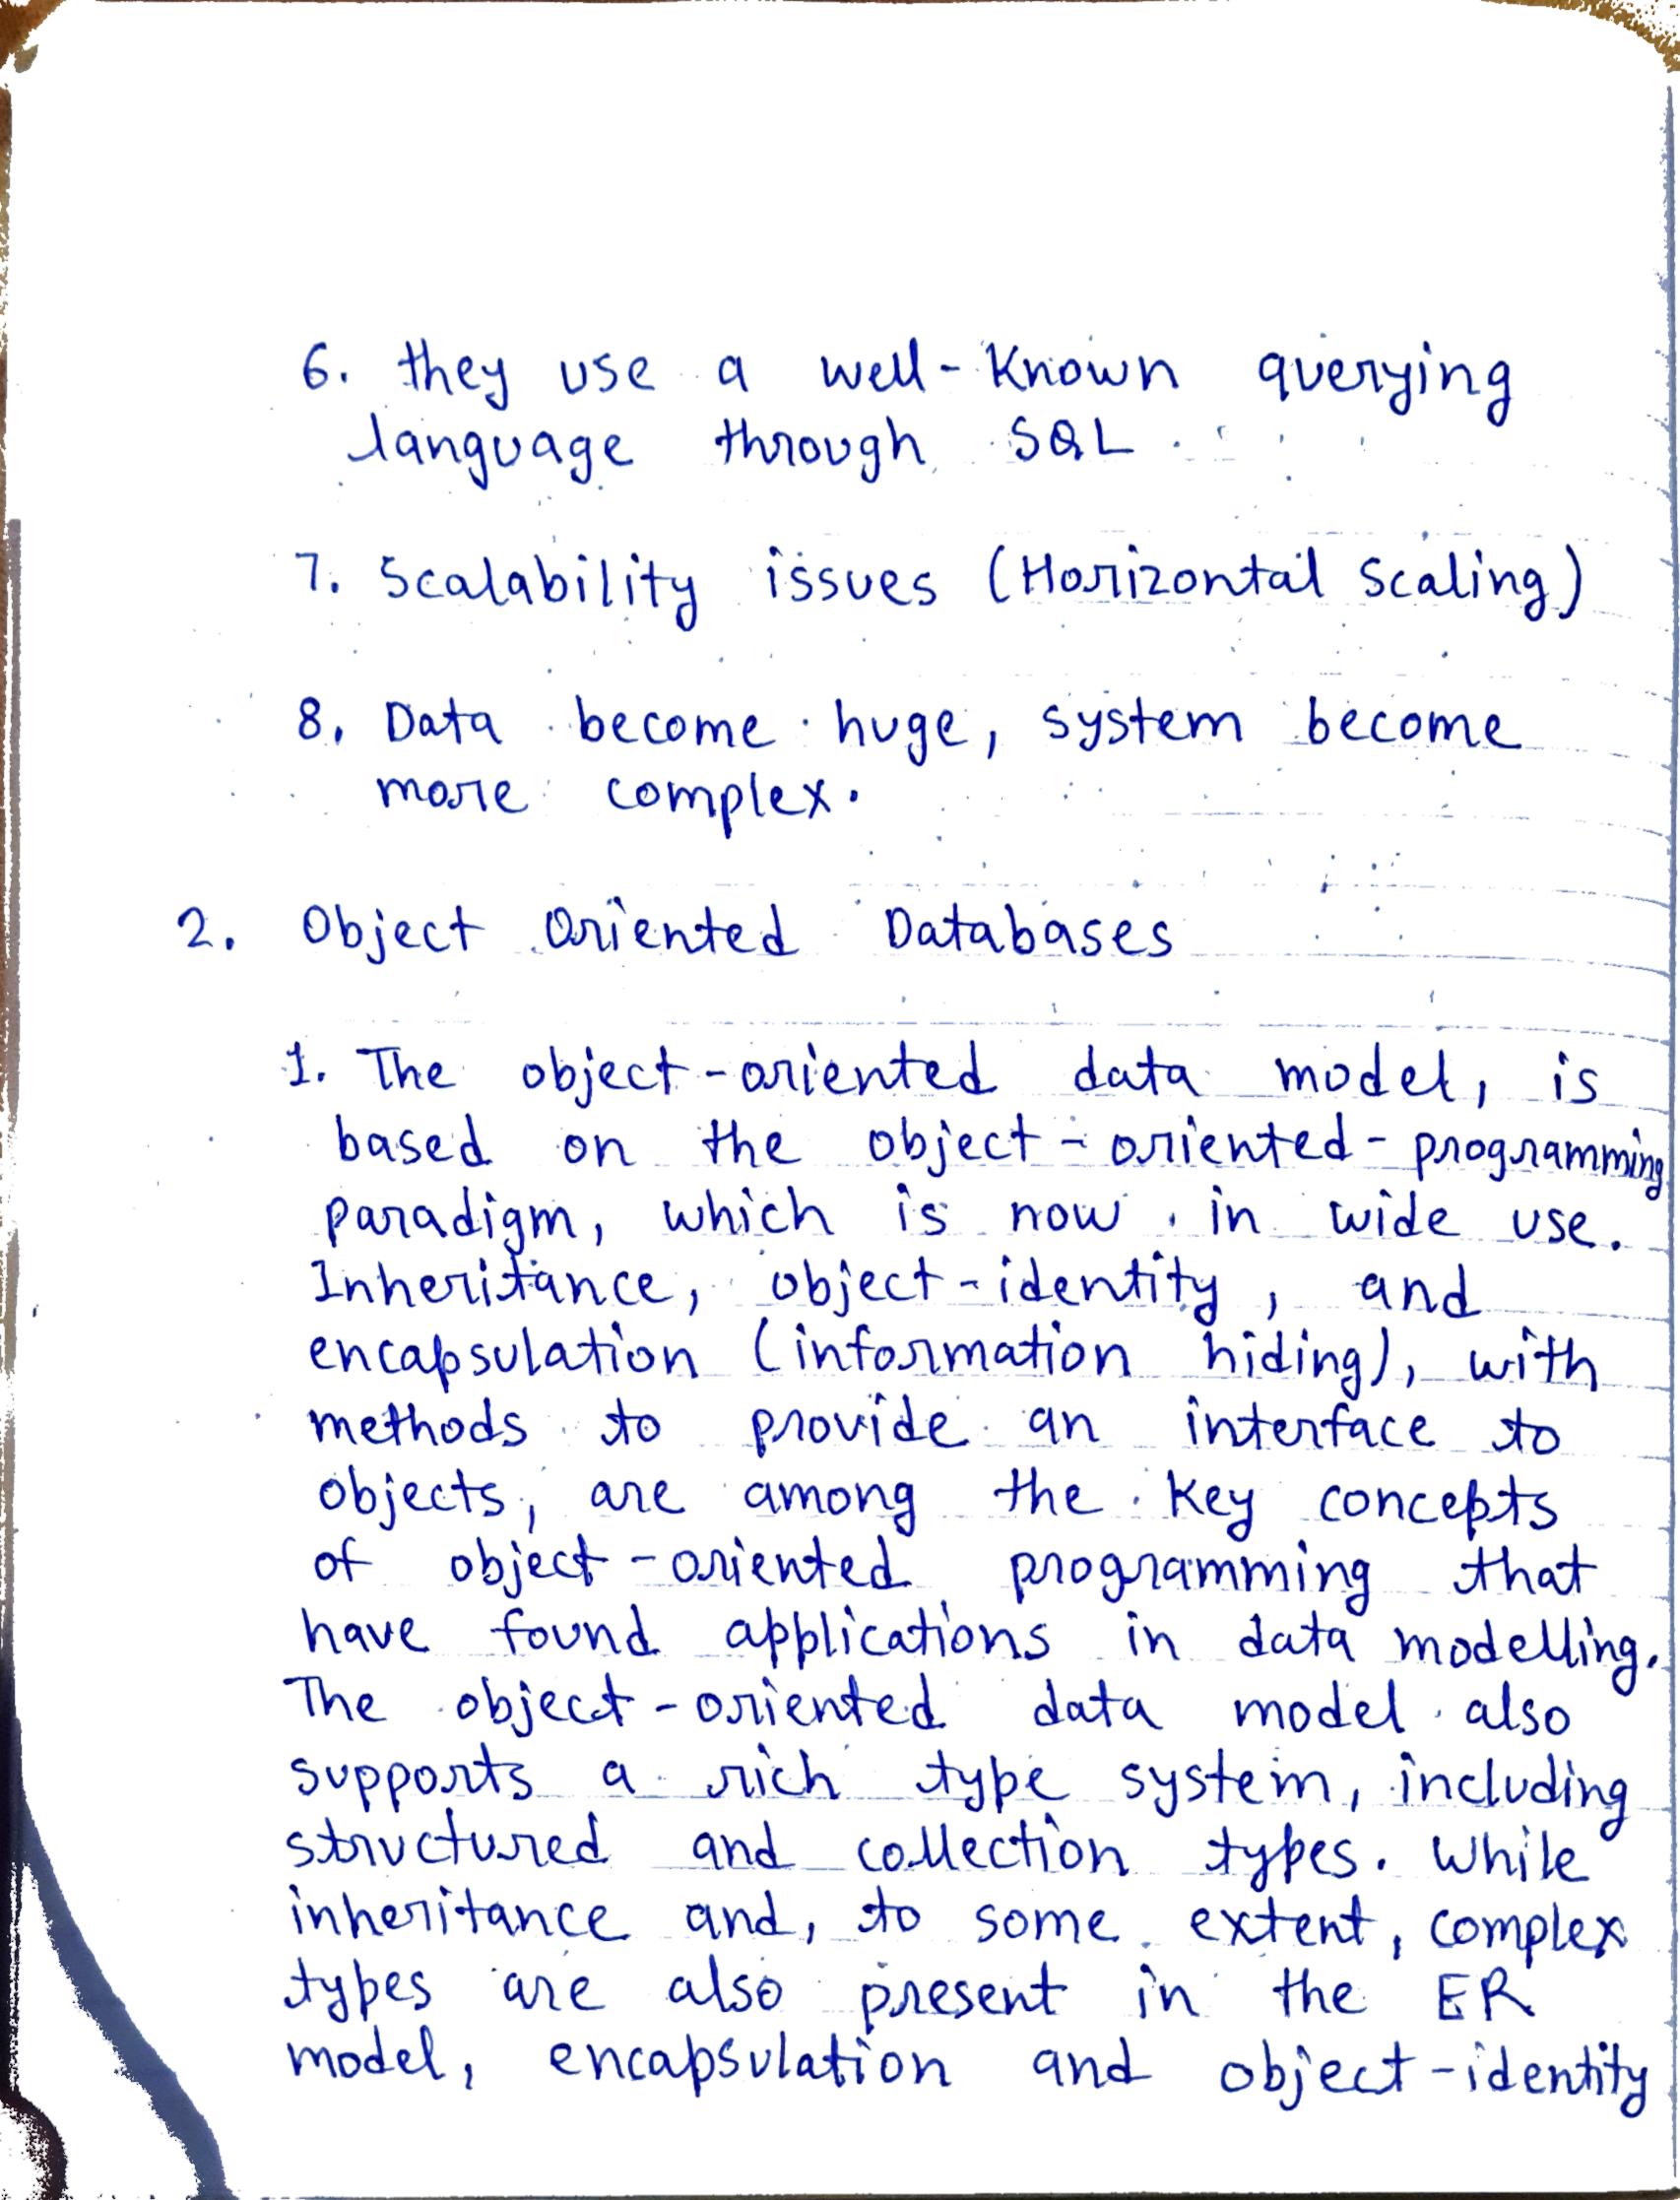 6. they use a well-known querying
language through SQL.
7. Scalability issues (Horizontal Scaling)
8. Data become huge, system become
more complex.
2. Object Oriented Databases
1. The object-oriented data model, is
based on the object-oriented-programming
paradigm, which is now in wide use.
Inheritance, object-identity, and
encapsulation (information hiding), with
methods to provide an interface to
objects, are among the key concepts
of object-oriented programming that
have found applications in data modelling.
The object-oriented data model also
supports a rich type system, including
structured and collection types. While
inheritance and, to some extent, complex
types are also present in the ER
model, encapsulation and object-identity